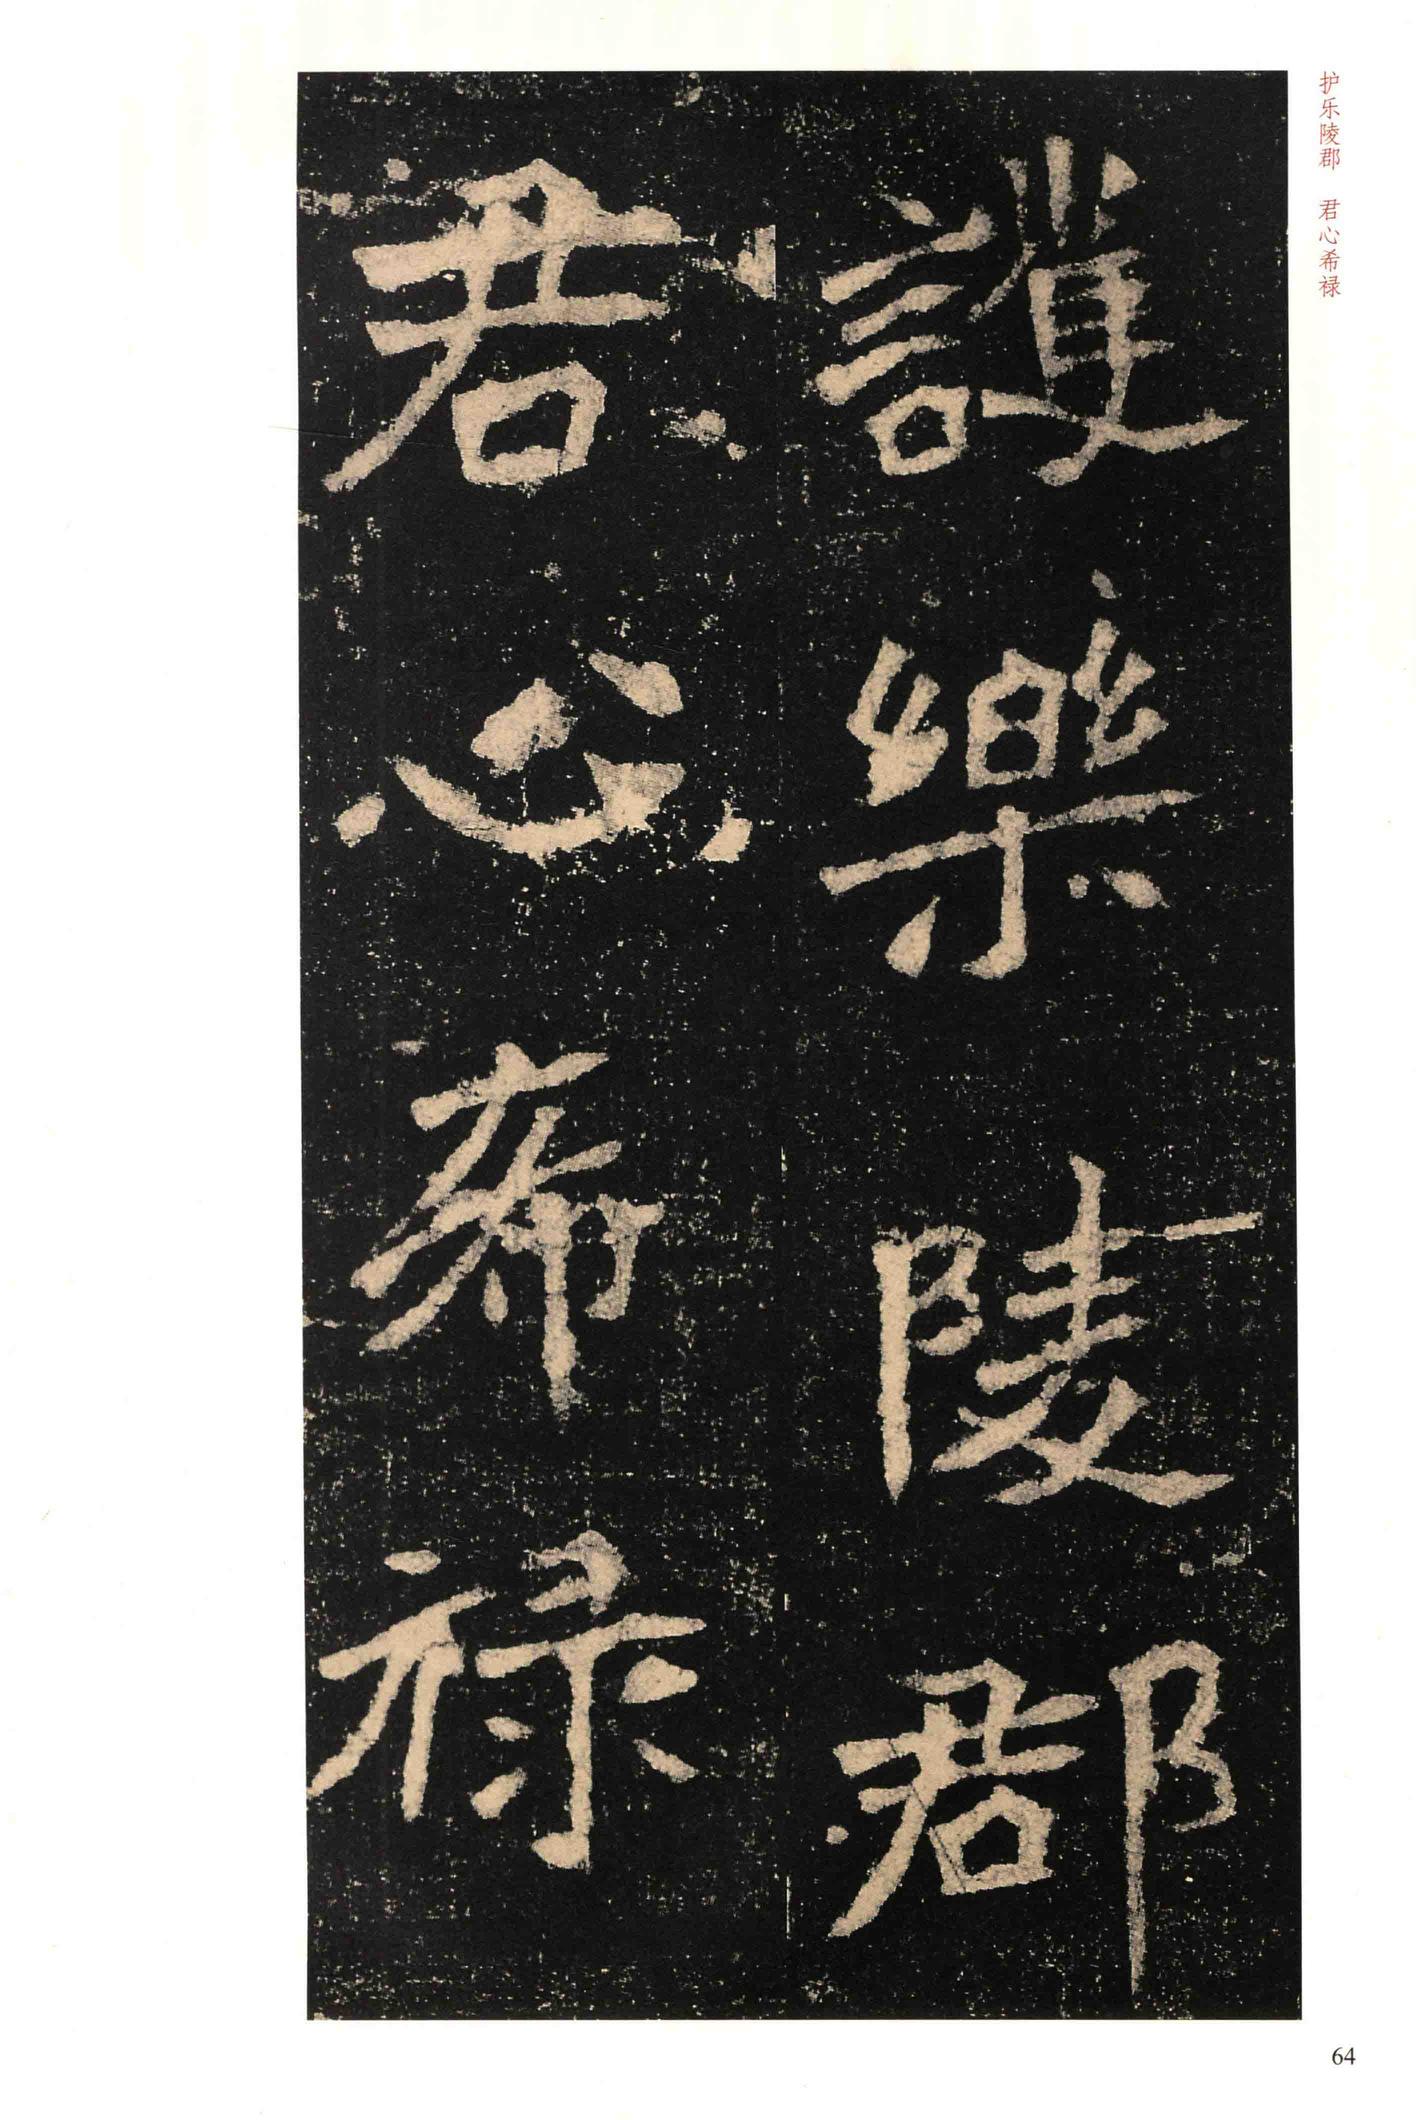 护乐陵郡　君心希禄
護樂陵郡
君心希祿
64